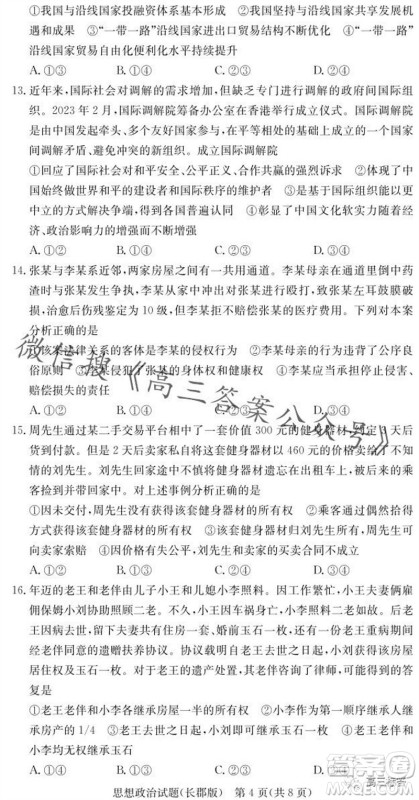 ①我国与沿线国家投融资体系基本形成　②我国坚持与沿线国家共享发展机
遇和成果　③“一带一路”沿线国家进出口贸易结构不断优化　④“一带一路”
沿线国家贸易自由化便利化水平持续提升
A.①③　B.①④　C.②③　D.②④
13.近年来,国际社会对调解的需求增加,但缺乏专门进行调解的政府间国际组
织。2023年2月,国际调解院筹备办公室在香港举行成立仪式。国际调解院
是由中国发起牵头、多个友好国家参与,在平等相处的基础上成立的一个国家
间调解矛盾、避免冲突的新组织。成立国际调解院
①回应了国际社会对和平安全、公平正义、合作共赢的强烈诉求　②体现了中
国始终做世界和平的建设者和国际秩序的维护者　③是基于国际组织能以更
大的力量维护和平,得到各国普遍认同　④彰显了中国文化软实力随着国家经
济、政治影响力的增强而不断增强
A.①②　B.①④　C.②③　D.③④
14.张某与李某系近邻,两家房屋之间有一共用通道。李某母亲在通道里倒中药
渣时与张某发生争执,李某从家中冲出对张某进行殴打,致张某左耳鼓膜破
损,经治疗后伤残鉴定为10级,但李某拒不赔偿张某的医疗费用。下列对本案
分析正确的是
①该案法律关系的客体是李某的侵权行为　②李某母亲的行为违背了公序良
俗原则　③李某侵犯了张某的身体权和健康权　④李某应承担停止侵害、
赔偿损失的责任
A.①②　B.①④　C.②③　D.③④
15.周先生通过某二手交易平台相中了一套价值300元的健身器材,约定3天后
货到付款。但是2天后卖家私自将这套健身器材以460元的价格卖给了不知
情的刘先生。刘先生回家途中不慎将健身器材遗忘在出租车上,被后来的乘
客捡到并带回家中。对上述事例分析正确的是
①因未交付,周先生没有获得该套健身器材的所有权　②乘客通过偶然拾得
方式获得该套健身器材的所有权　③该套健身器材归刘先生所有,周先生可
向卖家索赔　④因价格有失公平,刘先生与卖家的买卖合同不成立
A.①②　B.①③　C.②④　D.③④
16.年迈的老王和老伴由儿子小王和儿媳小李照料。因工作繁忙,小王夫妻俩雇
佣保姆小刘协助照顾王、老伴。不久,小王因车祸身亡,小李如故。后来,老王
因病去世,留下夫妻共有住房一套、婚前玉石一枚,还有一份老王重病期间
经老伴同意的遗赠扶养协议。协议载明自老王去世之日起,小刘可获得该房屋
居住权及玉石一枚。对于老王的遗产处置,其儿媳咨询了律师,可能得到的答
复是
①老王老伴和小李各继承房屋一半的所有权　②老王老伴作为第一顺序继承人继
承房产的1/4　③老王去世之日起,小刘即可享有对该房的居住权　④老伴和
小李均无权继承玉石
A.①②　B.①④　C.②③
思想政治试题(长郡版)　第4页(共8页)
微信搜《高三答案公众号》